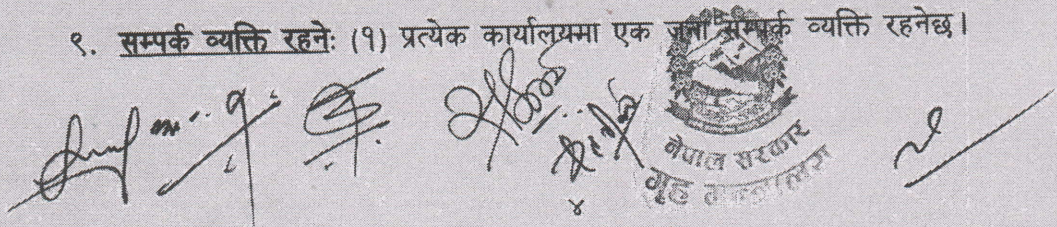 ९. सम्पर्क व्यक्ति रहनेः (१) प्रत्येक कार्यालयमा एक जना सम्पर्क व्यक्ति रहनेछ।
नेपाल सरकार
गृह मन्त्रालय
४